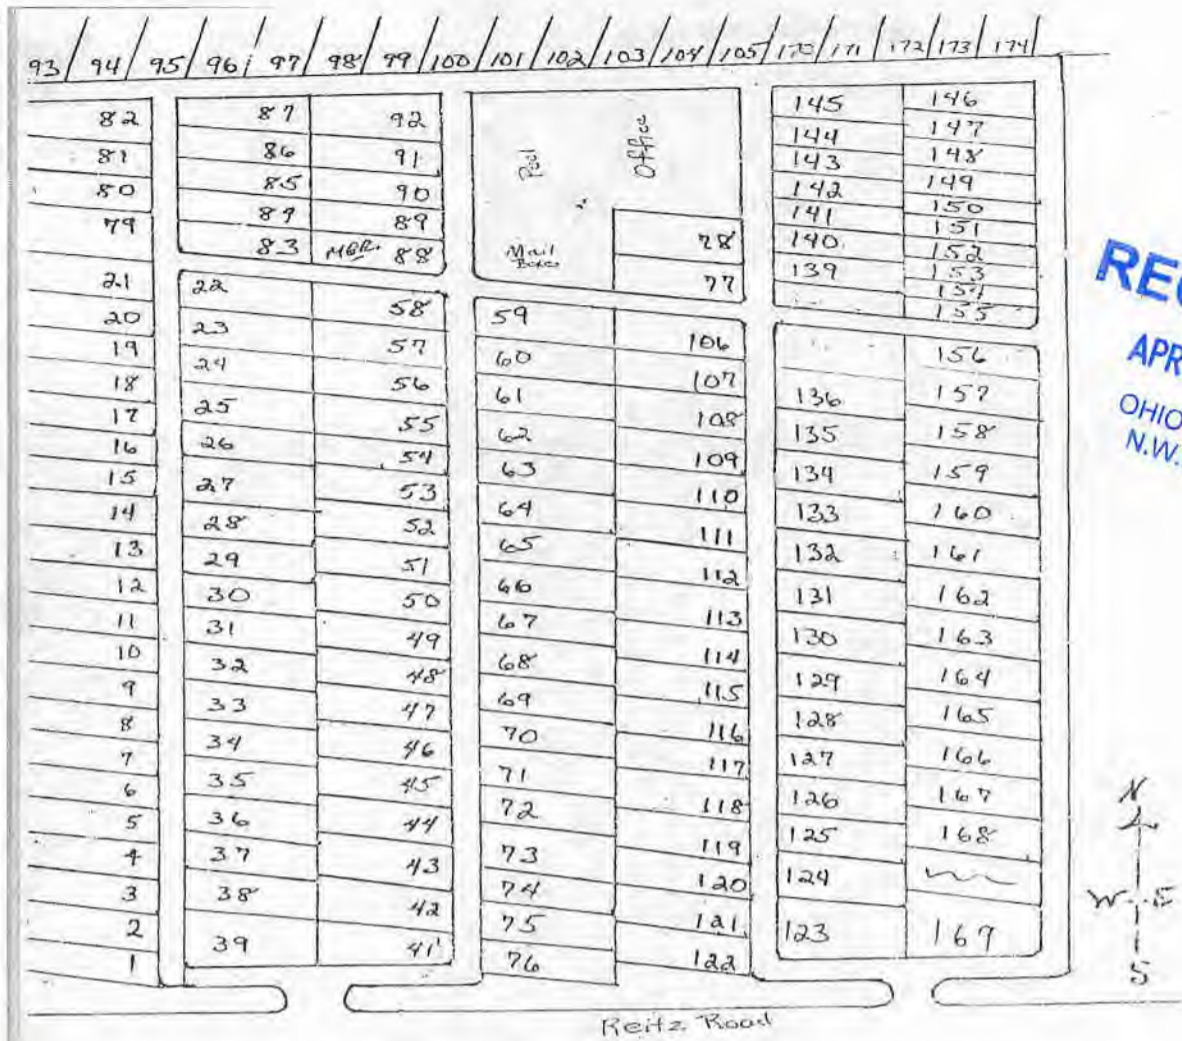 93 94 95 96 97 98 99 100 101 102 103 104 105 170 171 172 173 174
82
81
80
79
21
20
19
18
17
16
15
14
13
12
11
10
9
8
7
6
5
4
3
2
1
87 92
86 91
85 90
84 89
83 MGR. 88
22
23
24
25
26
27
28
29
30
31
32
33
34
35
36
37
38
39
58
57
56
55
54
53
52
51
50
49
48
47
46
45
44
43
42
41
Pool
Office
Mail
Boxes
78
77
59
60
61
62
63
64
65
66
67
68
69
70
71
72
73
74
75
76
106
107
108
109
110
111
112
113
114
115
116
117
118
119
120
121
122
145
144
143
142
141
140
139
146
147
148
149
150
151
152
153
154
155
136
135
134
133
132
131
130
129
128
127
126
125
124
123
156
157
158
159
160
161
162
163
164
165
166
167
168
169
REC
APR
OHIO
N.W.
N
W E
S
Reitz Road